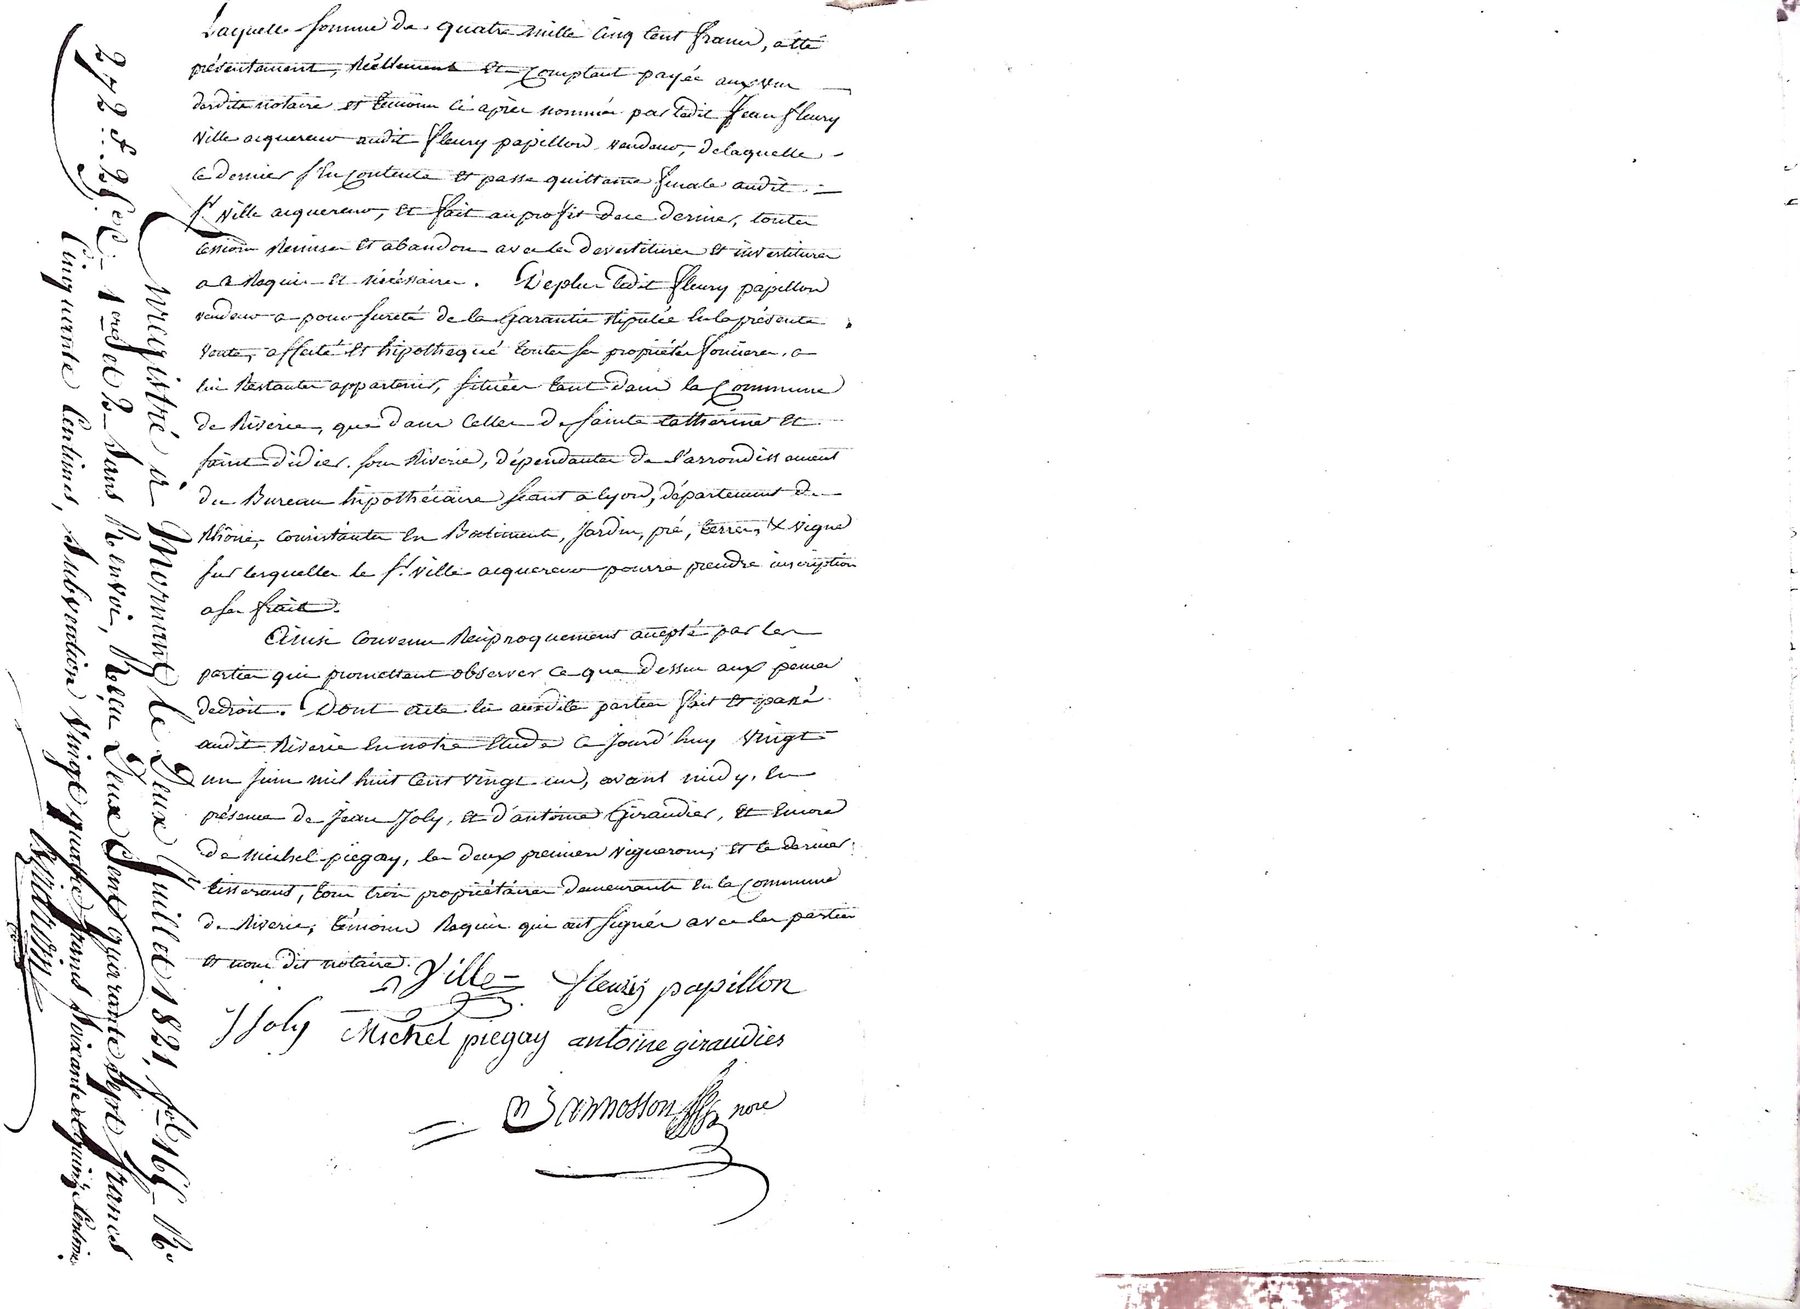 Laquelle somme de quatre mille cinq cent francs, a été
présentement, réellement et comptant payée aux vue
desdits notaire et témoins ci après nommés par ledit Jean fleury
ville acquereur audit fleury papillon vendeur, delaquelle
ce dernier s'en contente et passe quittance finale audit
Sr. ville acquereur, et fait au profit de ce dernier, toutes
cessions remises et abandon avec les devestitures et investitures
a ce requis et nécéssaire. Deplus ledit fleury papillon
vendeur a pour sureté de la garantie stipulée en la présente
vente, affecté et hipothequé toutes ses propriétés foncieres, a
lui restantes appartenir, situées tant dans la Commune
de Riverie, que dans celles de sainte catherine et
saint didier sous Riverie, dépendantes de l'arrondissement
du Bureau hipothécaire séant a lyon, département du
Rhône, consistantes en Batiments, Jardin, pré, terres, & vigne
sur lesquelles le Sr. ville acquereur pourra prendre inscription
a ses frais.
Ainsi convenu réciproquement accepté par les
parties qui promettent observer ce que dessus aux peines
dedroit. Dont acte lu auxdites parties fait et passé
audit Riverie en notre étude ce jourd'huy vingt
un juin mil huit cent vingt un, avant midy, en
présence de Jean Joly, et d'antoine Giraudier, et encore
de Michel piegay, les deux premiers vignerons, et le dernier
tisserant, tous trois propriétaires demeurants en la Commune
de Riverie, témoins requis qui ont signés avec les parties
et nous dit notaire.
Ville fleury papillon
J Joly Michel piegay antoine giraudier
nore
Enregistré à Mornant le Deux Juillet 1821, fol. 165 Ro
Cres 1ere et 2 sans renvoi, Reçu Deux Cent quarante Sept francs
Cinquante Centimes, subvention vingt quatre francs soixante et quinze Centimes
272 f 25 c